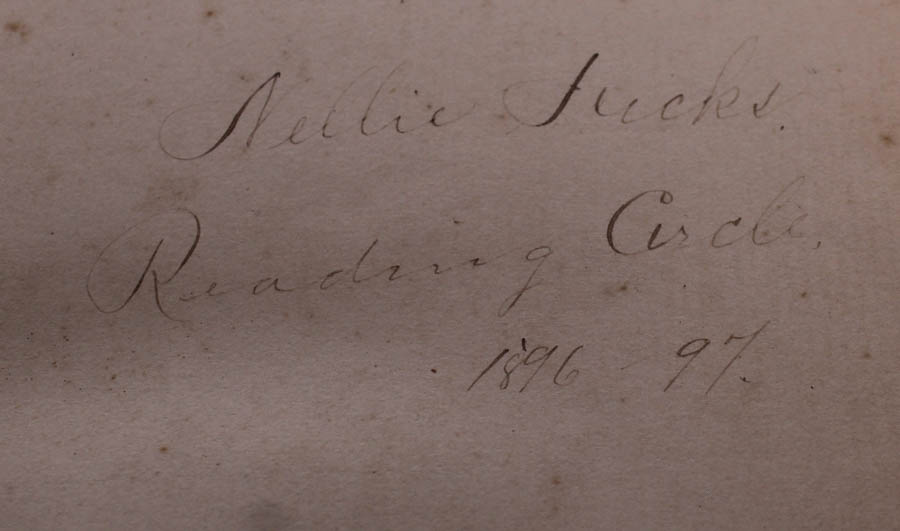 Nellie
Reading Circle.
1896 - 97.